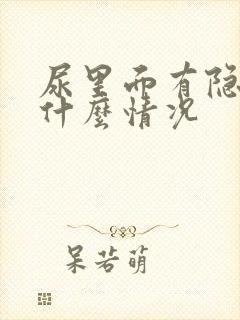 尿里面有隐
什麼情况
呆若萌